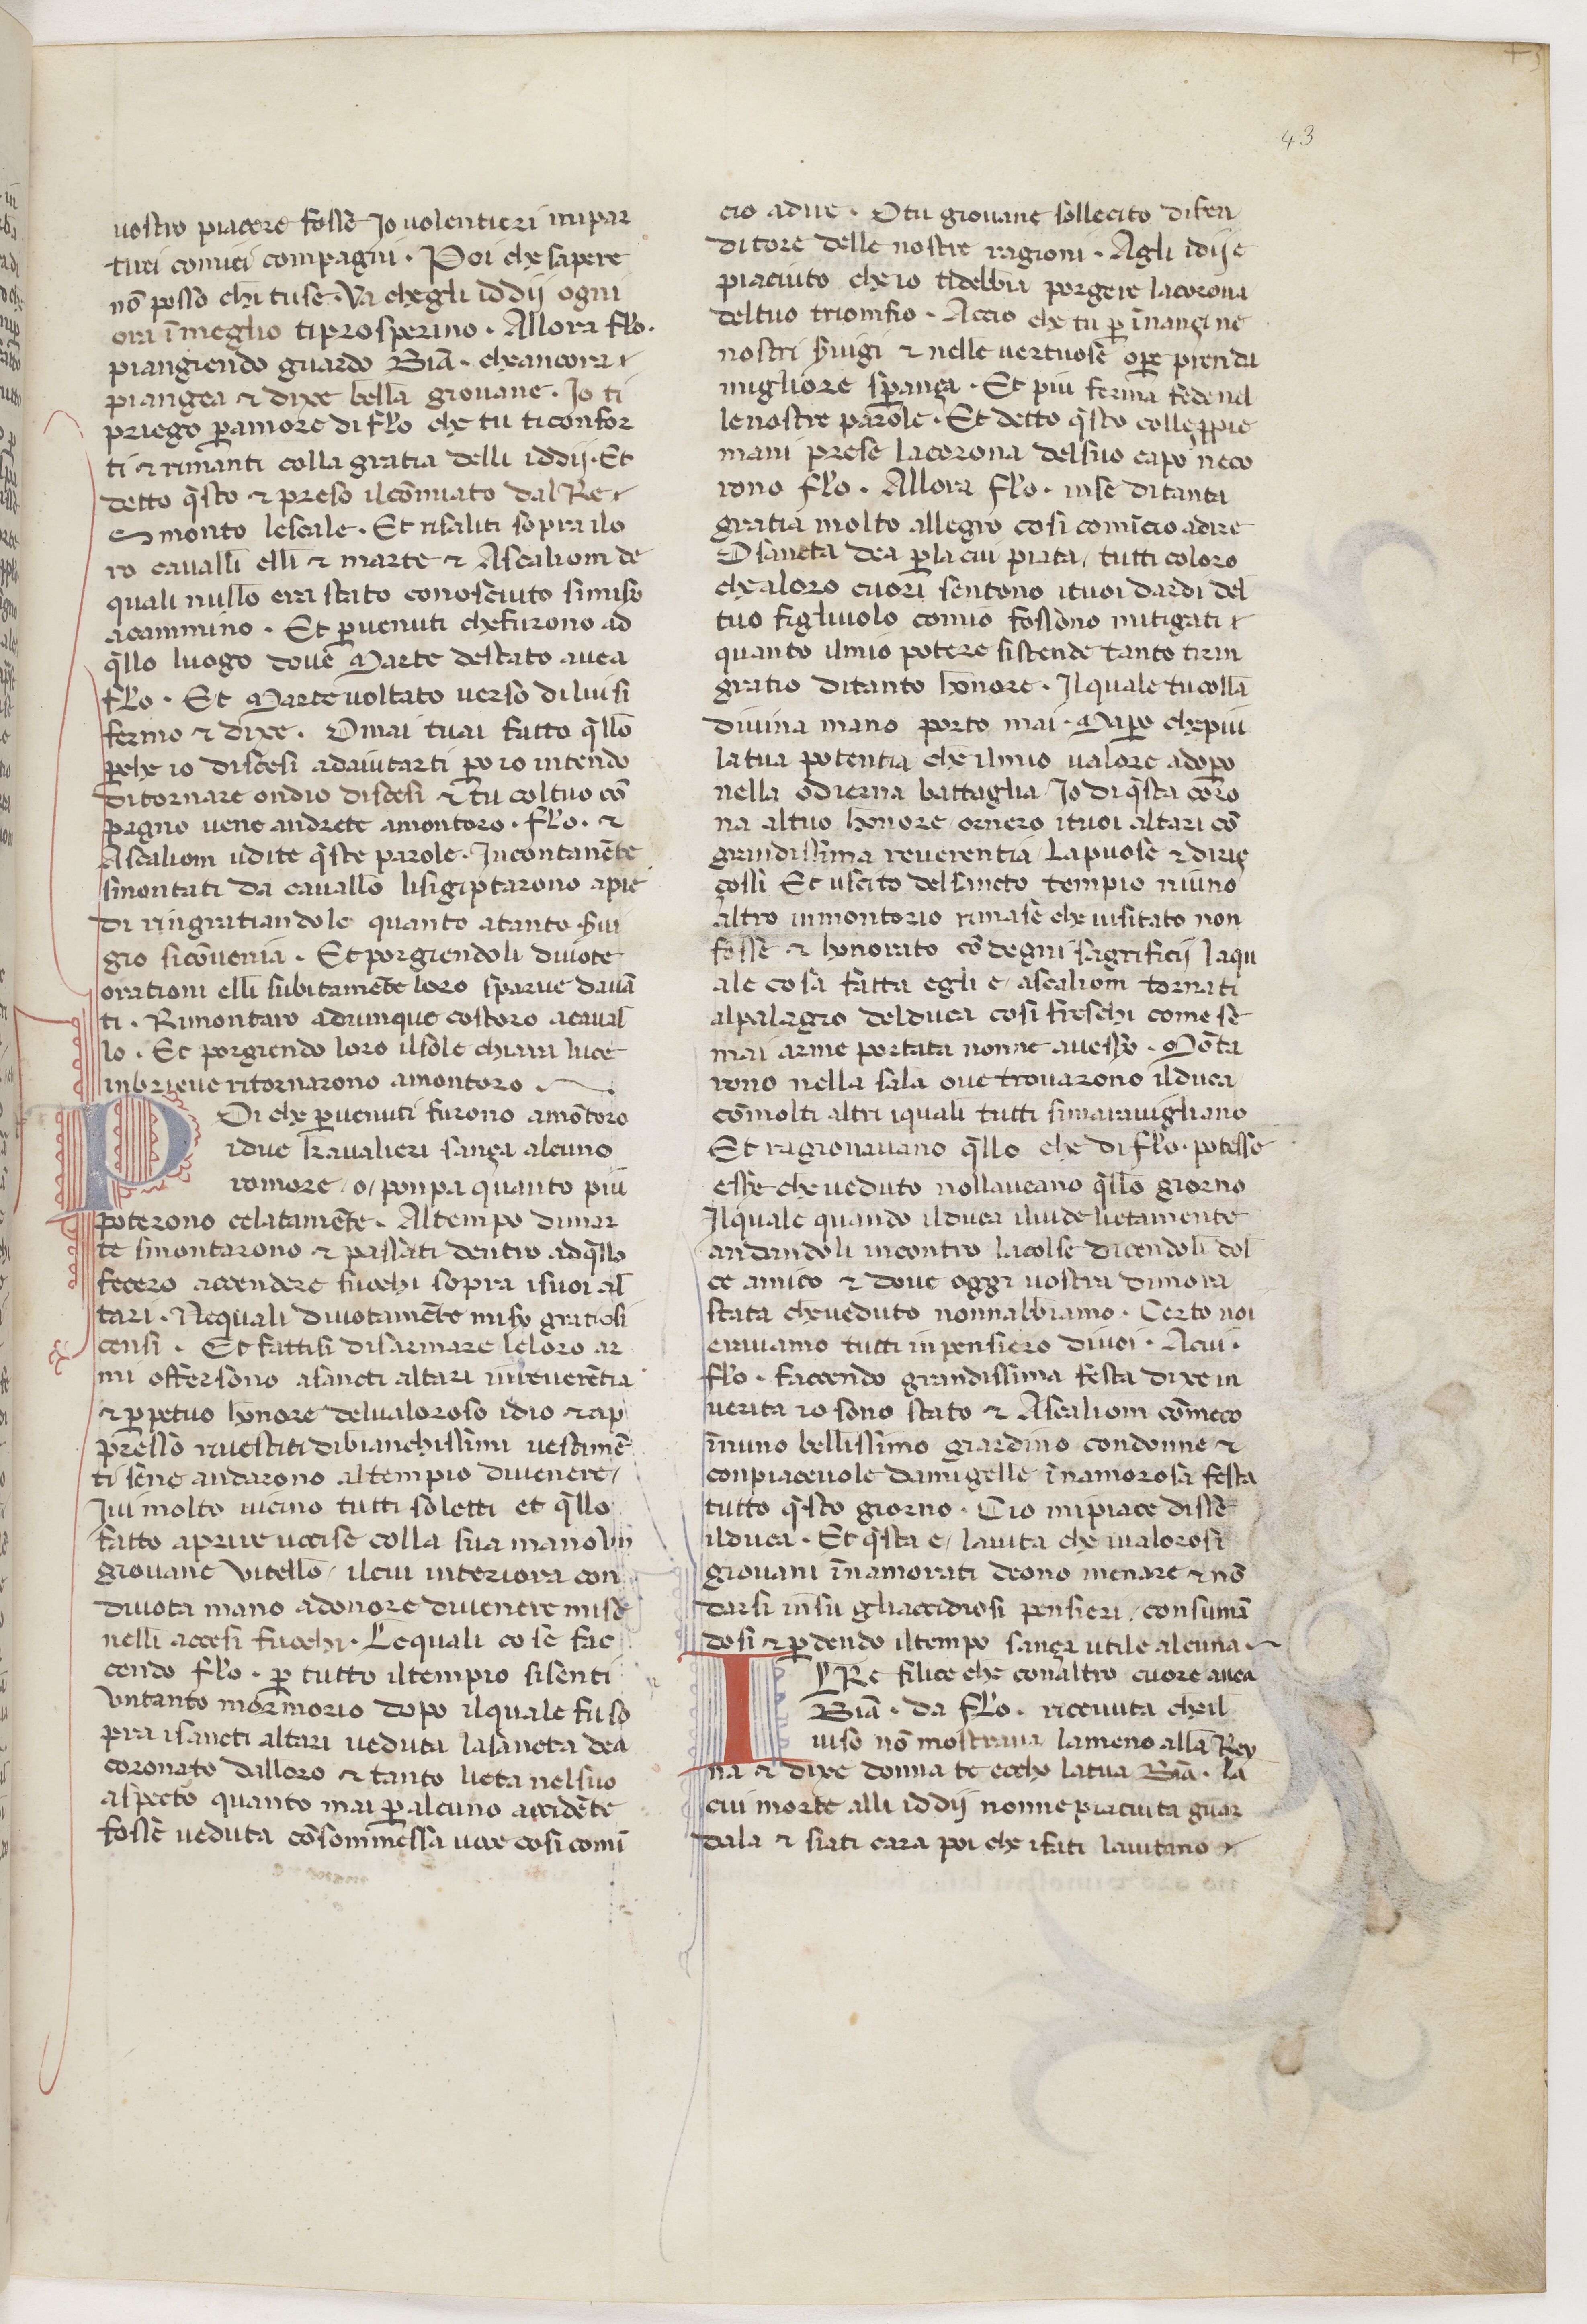 43
uostro piacere fosse Io uolentieri impar
tirei comiei compagni · Poi che sapere
nō posso chi tuse · Va chegli iddij ogni
ora ī meglio tiprosperino · Allora flo ·
piangiendo guardo Biā · cheancora
piangea ⁊ dixe bella giouane · Io ti
priego ꝑamore di flo che tu ticonfor
ti ⁊ rimanti colla gratia delli iddij · Et
detto q̄sto ⁊ preso ilcōmiato dal Re
smonto lescale · Et risaliti sopra ilo
ro caualli elli ⁊ marte ⁊ Ascalion de
quali nullo era stato conosciuto simiso
acammino · Et ꝑuenuti chefurono ad
q̄llo luogo doue Marte destato auea
flo · Et Marte uoltato uerso dilui si
fermo ⁊ dixe · Omai tuai fatto q̄llo
ꝑche io discesi adaiutarti ꝑo io intendo
ditornare ondio discesi ⁊ tu coltuo cō
pagno uene andrete amontoro · flo · ⁊
Ascalion udite q̄ste parole · Incontanēte
smontati da cauallo lisigiptarono apie
di ringratiandole quanto atanto ẜui
gio sicōuenia · Et porgiendoli diuote
orationi elli subitamēte loro sparue dauā
ti · Rimontaro adunque costoro acaual
lo · Et porgiendo loro ilsole chiara luce
inbrieue ritornarono amontoro ·
Poi che ꝑuenuti furono amōtoro
idue kaualieri sança alcuno
romore / o / ponpa quanto piu
poterono celatamēte · Altempo dimar
te smontarono ⁊ passati dentro adq̄llo
fecero accendere fuochi sopra isuoi al
tari · Nequali diuotamēte miso gratiosi
censi · Et fattisi disarmare leloro ar
mi offersono asancti altari inreuerētia
⁊ ꝑpetuo honore delualoroso idio ⁊ ap
presso riuestiti dibianchissimi uestimē
ti sene andarono altempio diuenere /
Iui molto uicino tutti soletti et q̄llo
fatto aprire uccise colla sua mano Vn
giouane Vitello / ilcui interiora con
diuota mano adonore diuenere mise
nelli accesi fuochi · Lequali cose fac
cendo flo · ꝑ tutto iltempio sisenti
Vntanto mormorio dopo ilquale fu so
pra isancti altari ueduta lasancta dea
coronato dalloro ⁊ tanto lieta nelsuo
aspecto quanto mai ꝑ alcuno accidēte
fosse ueduta cōsommessa uoce cosi comī
cio adire · O tu giouane sollecito difen
ditore delle nostre ragioni · Agli idij e
piaciuto che io tidebbia porgere lacorona
deltuo triomfio · Accio che tu ꝑ īnançi ne
nostri ẜuigi ⁊ nelle uertuose oꝑe prenda
migliore sꝑança · Et piu ferma fede nel
lenostre parole · Et detto q̄sto colle ꝓpie
mani prese lacorona delsuo capo neco
rono flo · Allora flo · inse ditanta
gratia molto allegro cosi comīcio adire
O sancta dea ꝑla cui piata / tutti coloro
chealoro cuori sentono ituoi dardi del
tuo figliuolo comio fossono mitigati
quanto ilmio potere sistende tanto tirin
gratio ditanto honore · Ilquale tu colla
diuina mano porto mai · Maꝑo chepiu
latua potentia che ilmio ualore adopo
nella odierna battaglia / Io di q̄sta coro
na altuo honore / ornero ituoi altari cō
grandissima reuerentia / Lapuose ⁊ diriç
çossi Et uscito delsancto tempio niuno
altro inmontorio rimase che uisitato non
fosse ⁊ honorato cō degni sagrificij laqu
ale cosa fatta egli e / ascalion tornati
alpalagio delduca cosi freschi come se
mai arme portata nonne auesso · Mōta
rono nella sala oue trouarono ilduca
cōmolti altri iquali tutti simarauigliano
Et ragionauano q̄llo che di flo · potesse
esse cheueduto nollaueano q̄llo giorno
Ilquale quando ilduca iluide lietamente
andandoli incontro lacolse dicendoli dol
ce amico ⁊ doue oggi uostra dimora
stata cheueduto nonnabbiamo · Certo noi
erauamo tutti inpensiero diuoi · Acui ·
flo · faccendo grandissima festa dixe in
uerita io sono stato ⁊ Ascalion cōmeco
īnuno bellissimo giardino condonne ⁊
conpiaceuole damigelle īnamorosa festa
tutto q̄sto giorno · Cio mipiace disse
ilduca · Et q̄sta e / lauita che iualorosi
giouani īnamorati deono menare ⁊ nō
darsi insu gliaccidiosi pensieri / consumā
dosi ⁊ ꝑdendo iltempo sança utile alcuna ·
IL Re filice che conaltro cuore auea
Biā · da flo · riceuuta cheil
uiso nō mostraua lameno alla Rey
na ⁊ dixe donna te eccho latua Biā · la
cui morte alli iddij nonne piaciuta guar
dala ⁊ siati cara poi che ifati lauitano